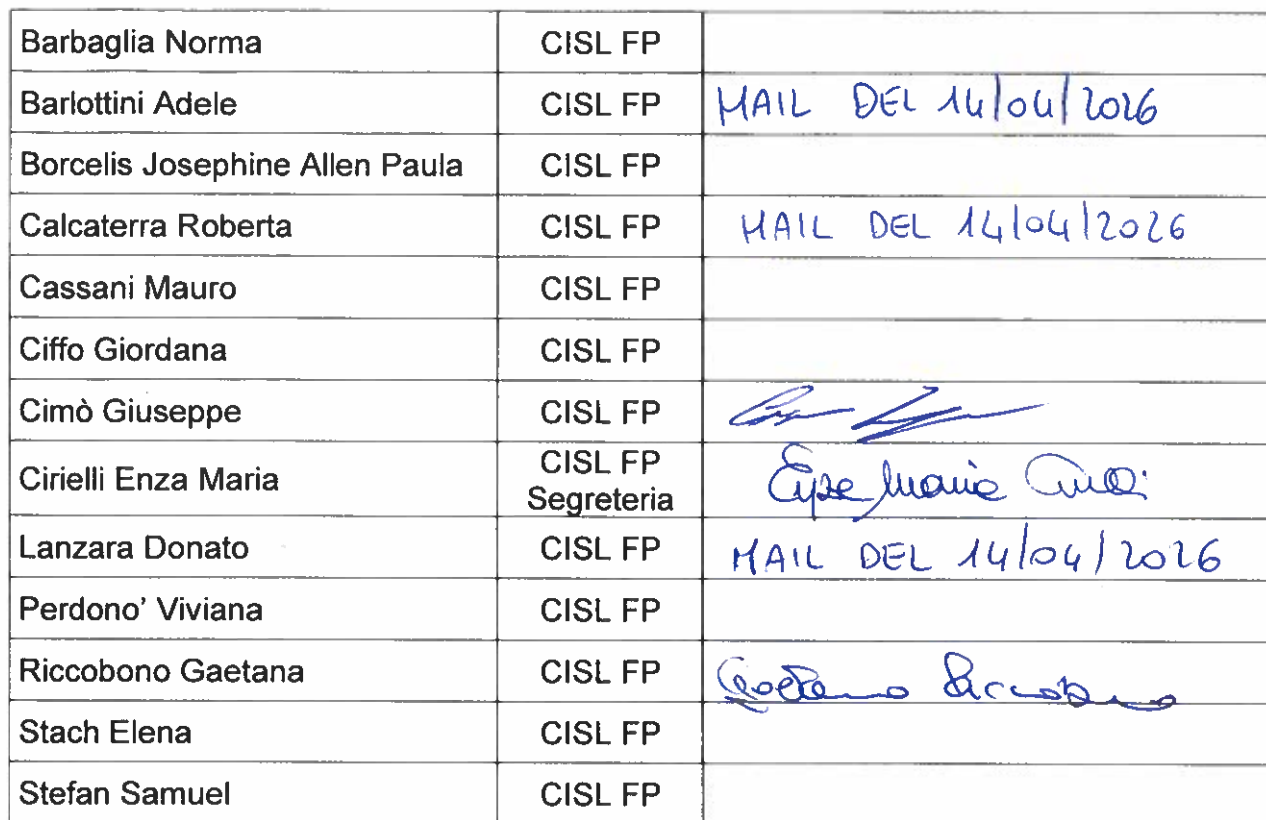 Barbaglia Norma CISL FP
Barlottini Adele CISL FP MAIL DEL 14/04/2026
Borcelis Josephine Allen Paula CISL FP
Calcaterra Roberta CISL FP MAIL DEL 14/04/2026
Cassani Mauro CISL FP
Ciffo Giordana CISL FP
Cimò Giuseppe CISL FP
Cirielli Enza Maria CISL FP Segreteria Enza Maria
Lanzara Donato CISL FP MAIL DEL 14/04/2026
Perdono' Viviana CISL FP
Riccobono Gaetana CISL FP Gaetana Riccobono
Stach Elena CISL FP
Stefan Samuel CISL FP